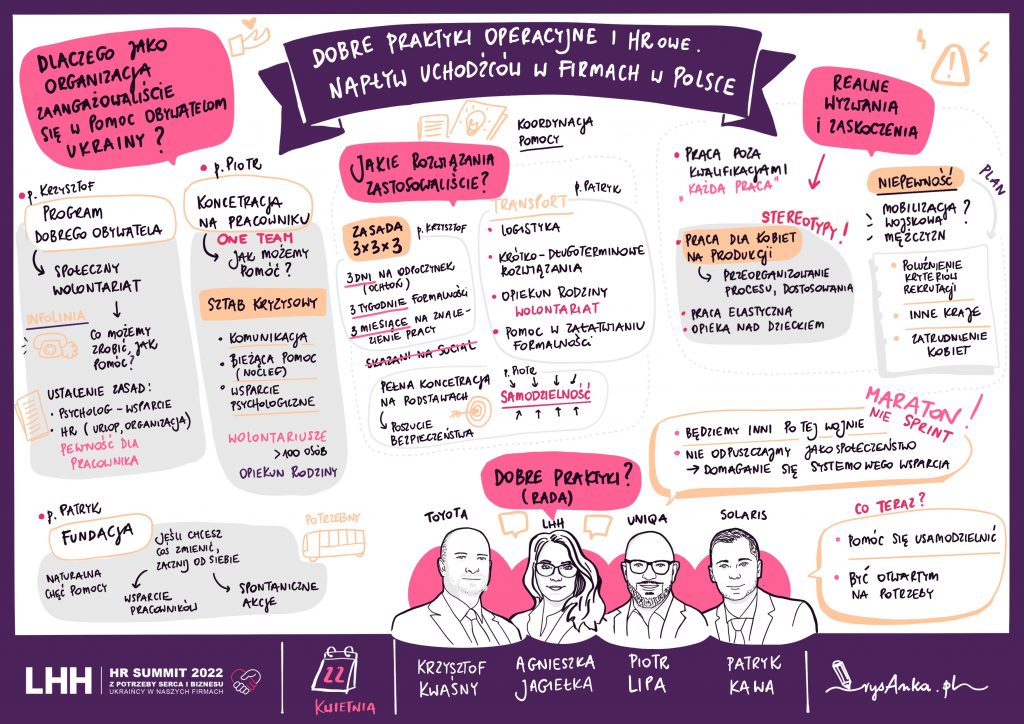 DOBRE PRAKTYKI OPERACYJNE I HROWE.
NAPŁYW UCHODŹCÓW W FIRMACH W POLSCE
DLACZEGO JAKO
ORGANIZACJA
ZAANGAŻOWALIŚCIE
SIĘ W POMOC OBYWATELOM
UKRAINY?
p. KRZYSZTOF
PROGRAM
DOBREGO OBYWATELA
SPOŁECZNY
WOLONTARIAT
INFOLINIA
CO MOŻEMY
ZROBIĆ, JAK
POMÓC?
USTALENIE ZASAD:
• PSYCHOLOG – WSPARCIE
• HR (URLOP, ORGANIZACJA)
PEWNOŚĆ DLA
PRACOWNIKA
p. PIOTR
KONCETRACJA
NA PRACOWNIKU
ONE TEAM
JAK MOŻEMY
POMÓC?
SZTAB KRYZYSOWY
• KOMUNIKACJA
• BIEŻĄCA POMOC
(NOCLEG)
• WSPARCIE
PSYCHOLOGICZNE
WOLONTARIUSZE
>100 OSÓB
OPIEKUN RODZINY
p. PATRYK
FUNDACJA
JEŚLI CHCESZ
COŚ ZMIENIĆ,
ZACZNIJ OD SIEBIE
NATURALNA
CHĘĆ POMOCY
WSPARCIE
PRACOWNIKÓW
SPONTANICZNE
AKCJE
POTRZEBNY
KOORDYNACJA
POMOCY
JAKIE ROZWIĄZANIA
ZASTOSOWALIŚCIE?
ZASADA
3x3x3
p. KRZYSZTOF
3 DNI NA ODPOCZYNEK
(OCHŁOŃ)
3 TYGODNIE FORMALNOŚCI
3 MIESIĄCE NA ZNALE-
ZIENIE PRACY
SKAZANI NA SOCIAL
p. PATRYK
TRANSPORT
• LOGISTYKA
• KRÓTKO-DŁUGOTERMINOWE
ROZWIĄZANIA
• OPIEKUN RODZINY
WOLONTARIAT
• POMOC W ZAŁATWIANIU
FORMALNOŚCI
PEŁNA KONCETRACJA
NA PODSTAWACH
POCZUCIE
BEZPIECZEŃSTWA
p. PIOTR
SAMODZIELNOŚĆ
REALNE
WYZWANIA
I ZASKOCZENIA
• PRACA POZA
KWALIFIKACJAMI
"KAŻDA PRACA"
STEREOTYPY!
• PRACA DLA KOBIET
NA PRODUKCJI
PRZEORGANIZOWANIE
PROCESU, DOSTOSOWANIA
• PRACA ELASTYCZNA
• OPIEKA NAD DZIECKIEM
NIEPEWNOŚĆ
PLAN
MOBILIZACJA?
WOJSKOWA
MĘŻCZYZN
• POLUŹNIENIE
KRYTERIÓW
REKRUTACJI
• INNE KRAJE
• ZATRUDNIENIE
KOBIET
MARATON!
NIE SPRINT
• BĘDZIEMY INNI PO TEJ WOJNIE
• NIE ODPUSZCZAJMY JAKO SPOŁECZEŃSTWO
→ DOMAGANIE SIĘ SYSTEMOWEGO WSPARCIA
DOBRE PRAKTYKI?
(RADA)
CO TERAZ?
• POMÓC SIĘ USAMODZIELNIĆ
• BYĆ OTWARTYM
NA POTRZEBY
TOYOTA
LHH
UNIQA
SOLARIS
LHH
HR SUMMIT 2022
Z POTRZEBY SERCA I BIZNESU
UKRAIŃCY W NASZYCH FIRMACH
22
KWIETNIA
KRZYSZTOF
KWAŚNY
AGNIESZKA
JAGIEŁKA
PIOTR
LIPA
PATRYK
KAWA
rysAnka.pl